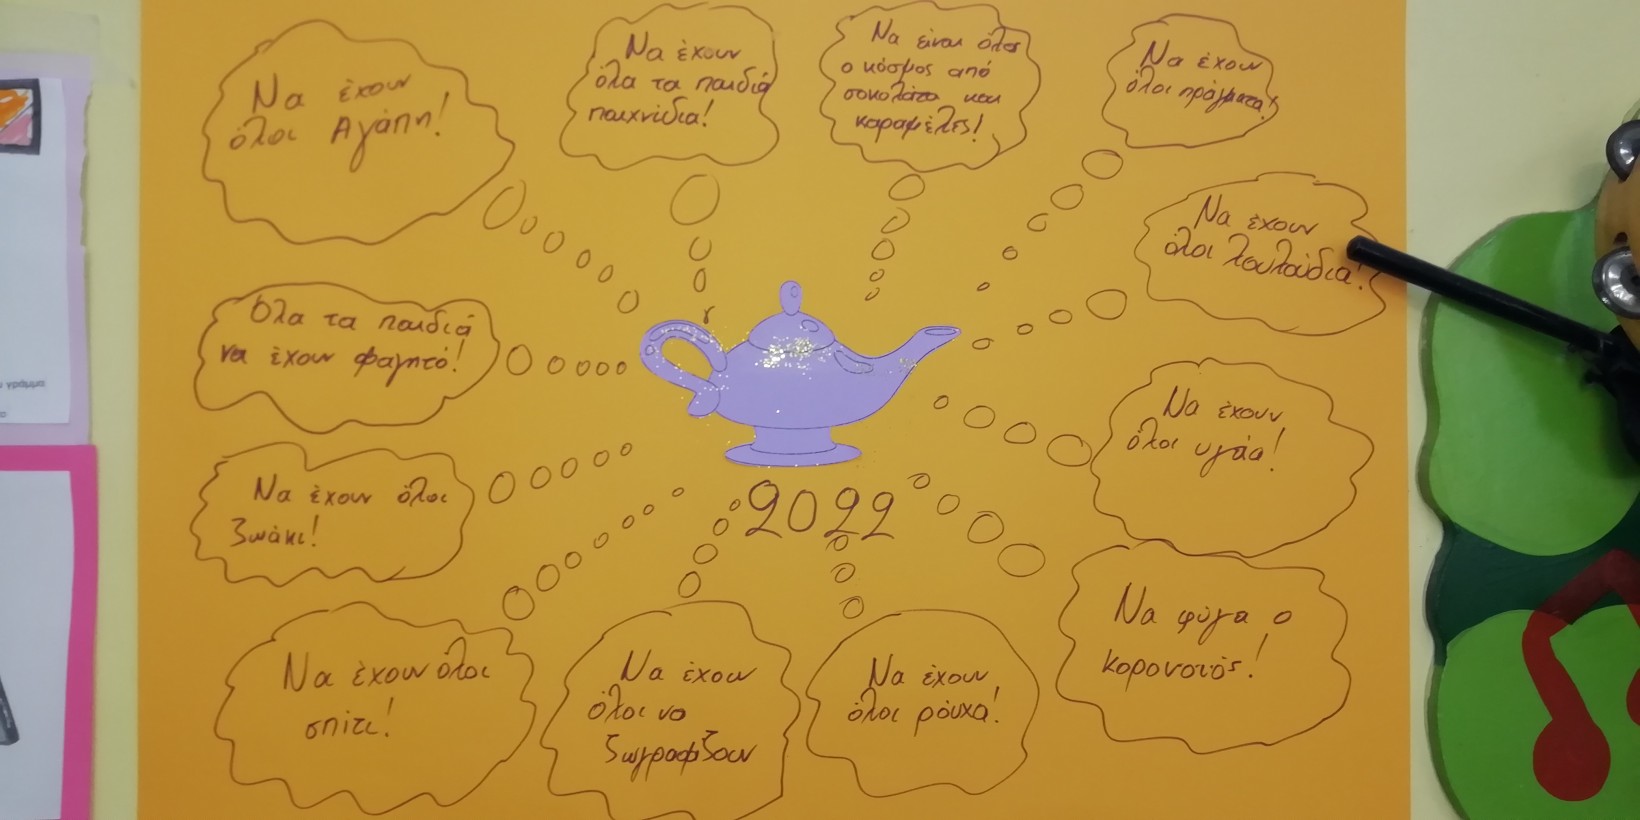 Να έχουν
όλοι Αγάπη!
Να έχουν
όλα τα παιδιά
παιχνίδια!
Να είναι όλος
ο κόσμος από
σοκολάτα και
καραμέλες!
Να έχουν
όλοι πράγματα!
Να έχουν
όλοι λουλούδια!
Όλα τα παιδιά
να έχουν φαγητό!
Να έχουν
όλοι υγεία!
Να έχουν όλοι
ζωάκι!
2022
Να φύγει ο
κορονοϊός!
Να έχουν όλοι
σπίτι!
Να έχουν
όλοι να
ζωγραφίζουν
Να έχουν
όλοι ρούχα!
γράμμα